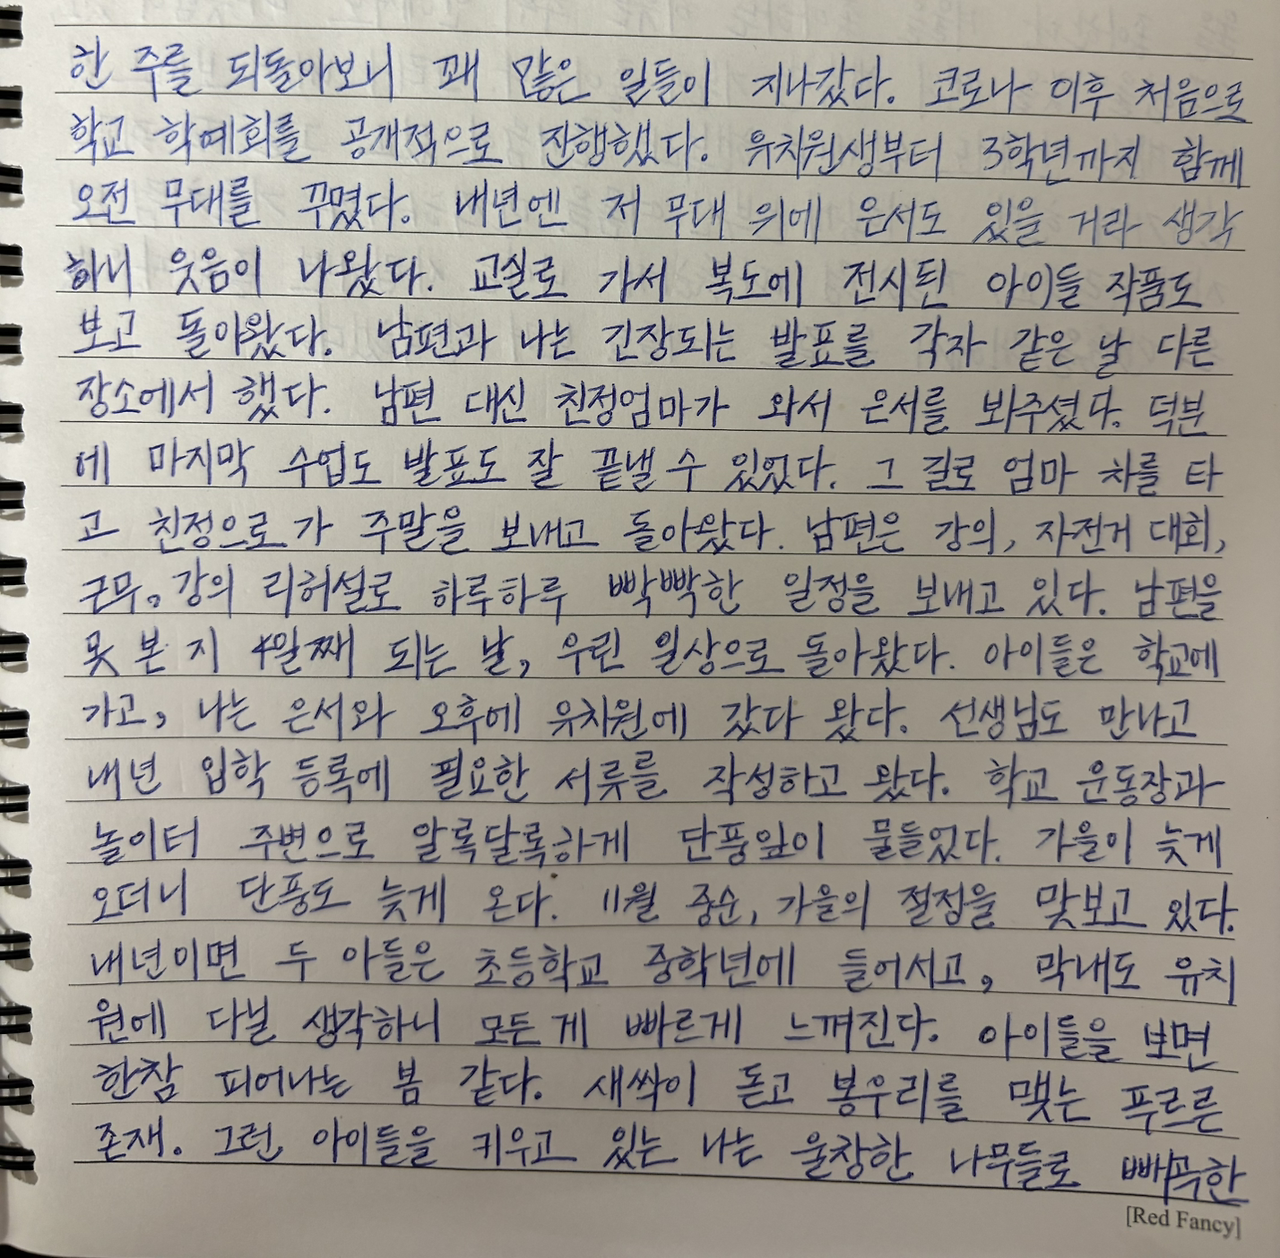 한 주를 되돌아보니 꽤 많은 일들이 지나갔다. 코로나 이후 처음으로
학교 학예회를 공개적으로 진행했다. 유치원생부터 3학년까지 함께
오전 무대를 꾸몄다. 내년엔 저 무대 위에 은서도 있을 거라 생각
하니 웃음이 나왔다. 교실로 가서 복도에 전시된 아이들 작품도
보고 돌아왔다. 남편과 나는 긴장되는 발표를 각자 같은 날 다른
장소에서 했다. 남편 대신 친정엄마가 와서 은서를 봐주셨다. 덕분
에 마지막 수업도 발표도 잘 끝낼 수 있었다. 그 길로 엄마 차를 타
고 친정으로 가 주말을 보내고 돌아왔다. 남편은 강의, 자전거 대회,
근무, 강의 리허설로 하루하루 빡빡한 일정을 보내고 있다. 남편을
못 본 지 4일째 되는 날, 우린 일상으로 돌아왔다. 아이들은 학교에
가고, 나는 은서와 오후에 유치원에 갔다 왔다. 선생님도 만나고
내년 입학 등록에 필요한 서류를 작성하고 왔다. 학교 운동장과
놀이터 주변으로 알록달록하게 단풍잎이 물들었다. 가을이 늦게
오더니 단풍도 늦게 온다. 11월 중순, 가을의 절정을 맛보고 있다.
내년이면 두 아들은 초등학교 중학년에 들어서고, 막내도 유치
원에 다닐 생각하니 모든 게 빠르게 느껴진다. 아이들을 보면
한참 피어나는 봄 같다. 새싹이 돋고 봉우리를 맺는 푸르른
존재. 그런 아이들을 키우고 있는 나는 울창한 나무들로 빼곡한
[Red Fancy]